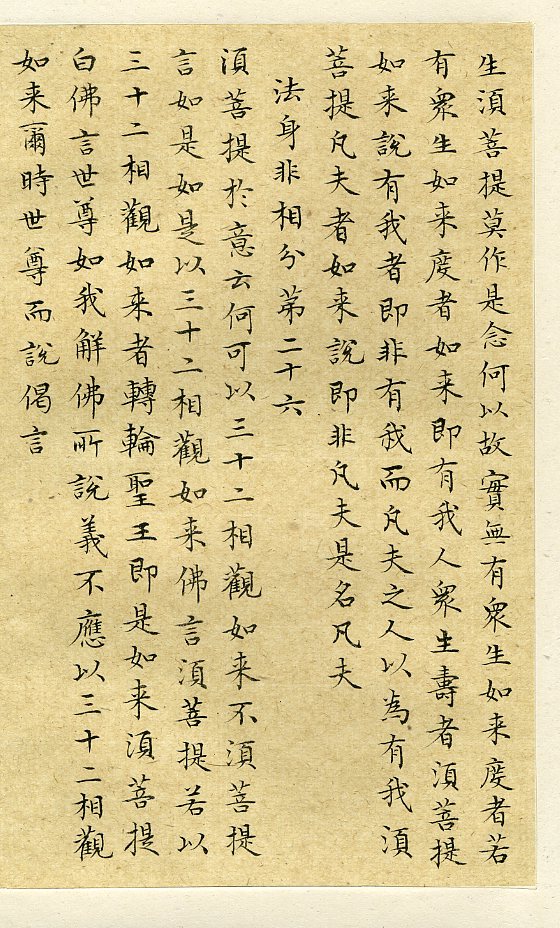 生湏菩提莫作是念何以故實無有衆生如来度者若
有衆生如来度者如来即有我人衆生壽者湏菩提
如来說有我者即非有我而凡夫之人以為有我湏
菩提凡夫者如来說即非凡夫是名凡夫
法身非相分第二十六
湏菩提於意云何可以三十二相觀如来不湏菩提
言如是如是以三十二相觀如来佛言湏菩提若以
三十二相觀如来者轉輪聖王即是如来湏菩提
白佛言世尊如我解佛所說義不應以三十二相觀
如来爾時世尊而說偈言